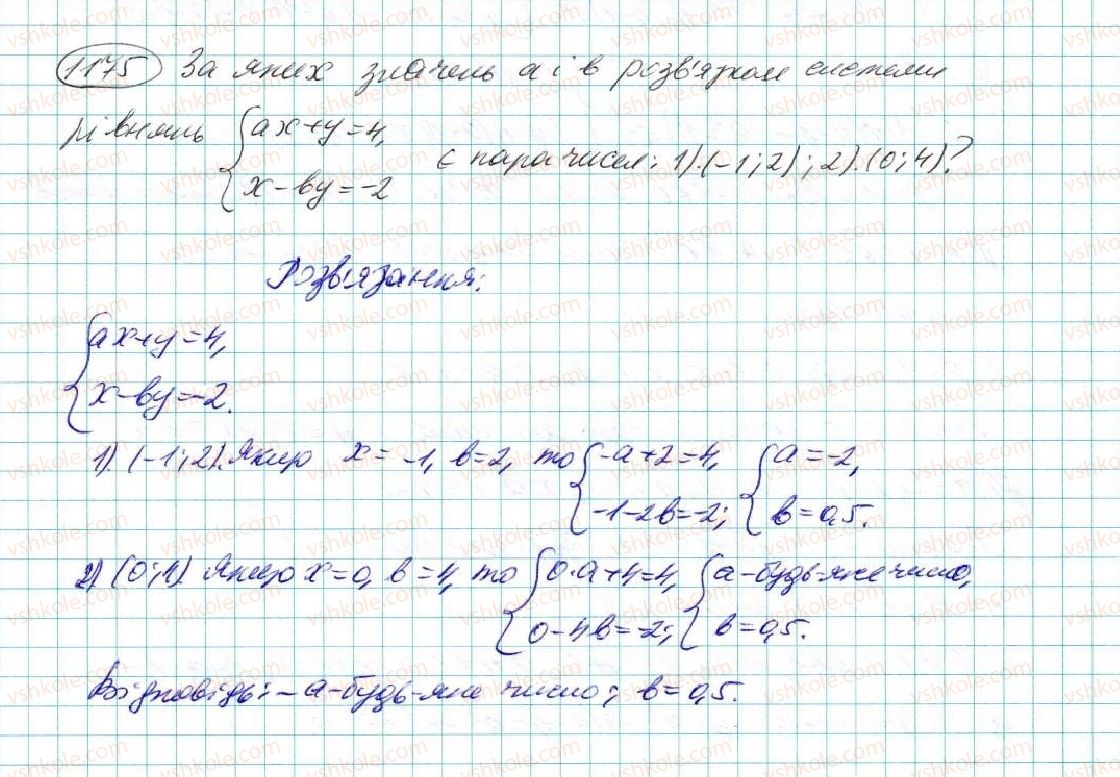 1175 За яких значень a і b розв'язком системи
рівнянь { ax+y=4, x-by=-2 є пара чисел: 1).(-1;2); 2).(0;4)?
Розв'язання:
{ ax+y=4,
x-by=-2.
1) (-1;2). Якщо x=-1, b=2, то { -a+2=4, -1-2b=-2; { a=-2, b=0,5.
2) (0;4). Якщо x=0, b=4, то { 0·a+4=4, 0-4b=-2; { a-будь-яке число, b=0,5.
Відповідь: -a-будь-яке число; b=0,5.
vshkole.com